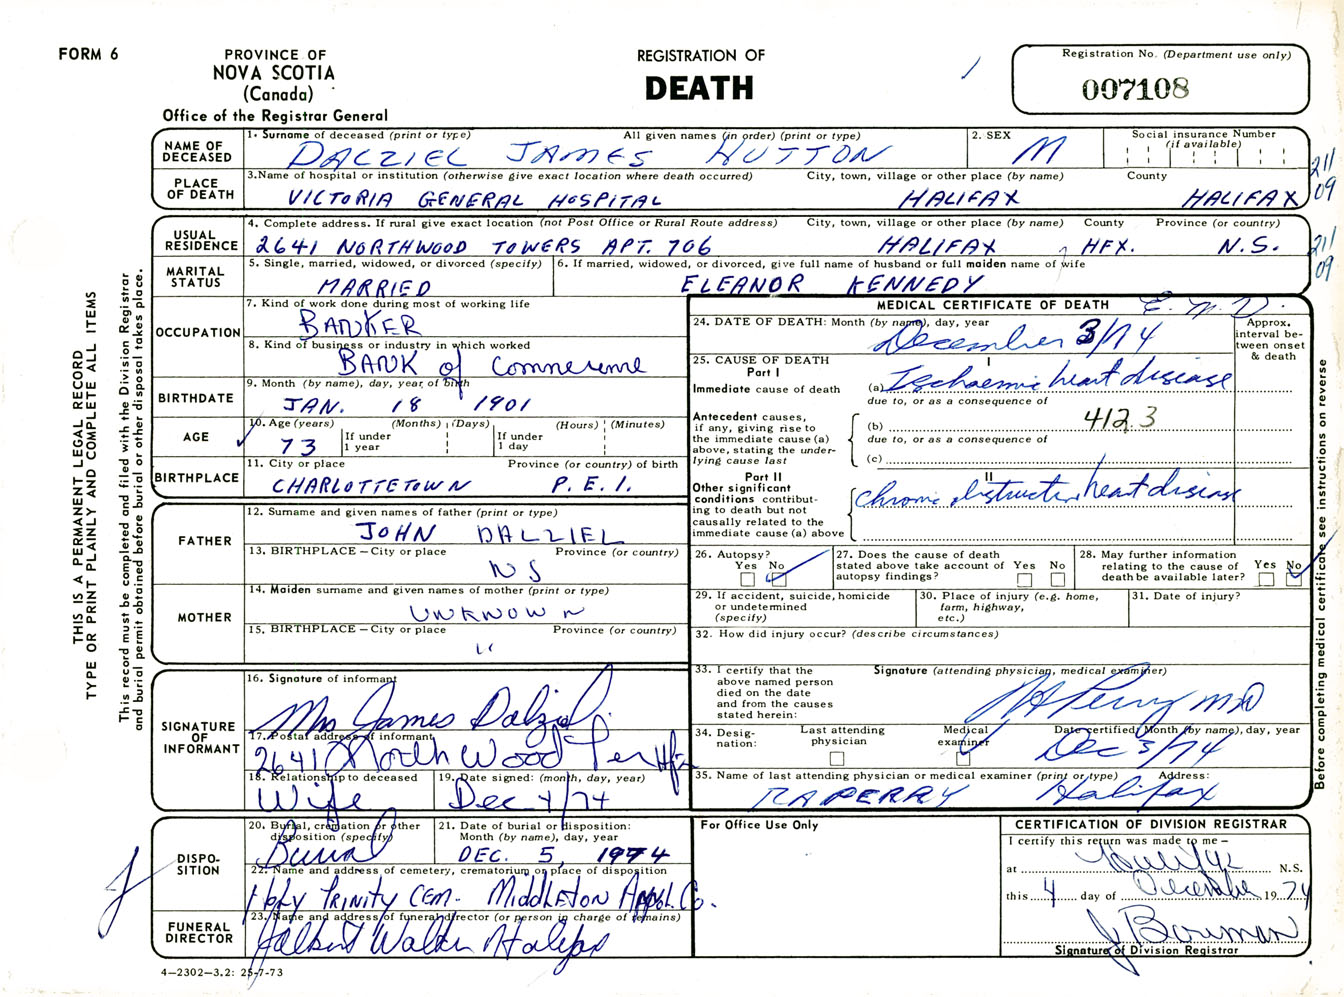 FORM 6
PROVINCE OF
NOVA SCOTIA
(Canada)
Office of the Registrar General
REGISTRATION OF
DEATH
Registration No. (Department use only)
007108
THIS IS A PERMANENT LEGAL RECORD
TYPE OR PRINT PLAINLY AND COMPLETE ALL ITEMS
This record must be completed and filed with the Division Registrar
and burial permit obtained before burial or other disposal takes place.
NAME OF DECEASED
1. Surname of deceased (print or type) All given names (in order) (print or type)
DALZIEL JAMES HUTTON
2. SEX
M
Social insurance Number
(if available)
PLACE OF DEATH
3. Name of hospital or institution (otherwise give exact location where death occurred) City, town, village or other place (by name) County
VICTORIA GENERAL HOSPITAL HALIFAX HALIFAX
211
09
USUAL RESIDENCE
4. Complete address. If rural give exact location (not Post Office or Rural Route address) City, town, village or other place (by name) County Province (or country)
2641 NORTHWOOD TOWERS APT. 706 HALIFAX HFX. N.S.
211
09
MARITAL STATUS
5. Single, married, widowed, or divorced (specify)
MARRIED
6. If married, widowed, or divorced, give full name of husband or full maiden name of wife
ELEANOR KENNEDY
OCCUPATION
7. Kind of work done during most of working life
BANKER
8. Kind of business or industry in which worked
BANK of Commerce
BIRTHDATE
9. Month (by name), day, year, of birth
JAN. 18 1901
AGE
10. Age (years) (Months) (Days) (Hours) (Minutes)
73 If under 1 year If under 1 day
BIRTHPLACE
11. City or place Province (or country) of birth
CHARLOTTETOWN P.E.I.
FATHER
12. Surname and given names of father (print or type)
JOHN DALZIEL
13. BIRTHPLACE – City or place Province (or country)
N S
MOTHER
14. Maiden surname and given names of mother (print or type)
UNKNOWN
15. BIRTHPLACE – City or place Province (or country)
"
SIGNATURE OF INFORMANT
16. Signature of informant
Mrs James Dalziel
17. Postal address of informant
2641 North Wood Ter Hfx
18. Relationship to deceased
Wife
19. Date signed: (month, day, year)
Dec 4/74
DISPOSITION
20. Burial, cremation or other disposition (specify)
Burial
21. Date of burial or disposition: Month (by name), day, year
DEC. 5, 1974
22. Name and address of cemetery, crematorium or place of disposition
Holy TRINITY CEM. MIDDLETON Appol. Co.
FUNERAL DIRECTOR
23. Name and address of funeral director (or person in charge of remains)
Walker Halifax
4–2302–3.2: 25-7-73
MEDICAL CERTIFICATE OF DEATH
24. DATE OF DEATH: Month (by name), day, year
December 3/74
Approx. interval between onset & death
25. CAUSE OF DEATH
Part I
I
Immediate cause of death
(a) Ischaemic heart disease
due to, or as a consequence of
Antecedent causes, if any, giving rise to the immediate cause (a) above, stating the underlying cause last
412.3
(b)
due to, or as a consequence of
(c)
Part II
II
Other significant conditions contributing to death but not causally related to the immediate cause (a) above
chronic obstructive heart disease
26. Autopsy?
Yes No
27. Does the cause of death stated above take account of autopsy findings?
Yes No
28. May further information relating to the cause of death be available later?
Yes No
29. If accident, suicide, homicide or undetermined (specify)
30. Place of injury (e.g. home, farm, highway, etc.)
31. Date of injury?
32. How did injury occur? (describe circumstances)
33. I certify that the above named person died on the date and from the causes stated herein:
Signature (attending physician, medical examiner)
RA Perry MD
34. Designation:
Last attending physician
Medical examiner
Date certified: Month (by name), day, year
Dec 3/74
35. Name of last attending physician or medical examiner (print or type) Address:
RA PERRY Halifax
For Office Use Only
CERTIFICATION OF DIVISION REGISTRAR
I certify this return was made to me –
at Halifax N.S.
this 4 day of December 1974
J Bowman
Signature of Division Registrar
Before completing medical certificate see instructions on reverse